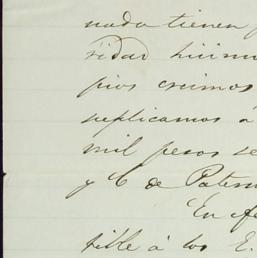 nada tienen
pios creimos
suplicamos á
mil pesos
y C de Patern
En
sible á los E.